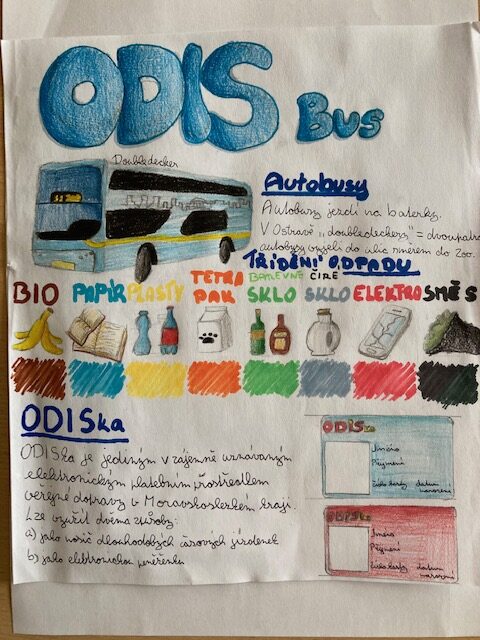 ODIS Bus
Doubledecker
Autobusy
Autobusy jezdí na baterky.
V Ostravě „doubledeckery" = dvoupatrové
autobusy vyjeli do ulic směrem do zoo.
TŘÍDĚNÍ ODPADU
BIO PAPÍR PLASTY TETRA PAK BAREVNÉ SKLO ČIRÉ SKLO ELEKTRO SMĚS
ODISka
ODISka je jediným vzájemně uznávaným
elektronickým platebním prostředkem
veřejné dopravy v Moravskoslezském kraji.
Lze využít dvěma způsoby:
a) jako nosič dlouhodobých časových jízdenek
b) jako elektronickou peněženku
ODISka
Jméno
Příjmení
číslo karty datum
narození
ODISka
Jméno
Příjmení
číslo karty datum
narození